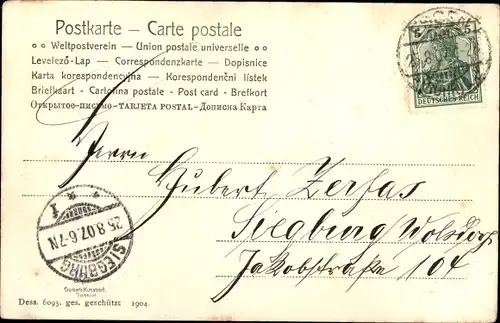 Postkarte — Carte postale
Weltpostverein — Union postale universelle
Levelező-Lap — Correspondenzkarte — Dopisnice
Karta korespondencyjna — Korespondenční lístek
Briefkaart - Cartolina postale - Post card - Brefkort
Открытое-письмо — TARJETA POSTAL — Дописна Карта
5 5
DEUTSCHES REICH
Herrn
Hubert Zerfas
Siegburg Wolsdorf
Jakobstraße 104
SIEGBURG
25.8.07.6-7N
* * 1
Dess. 6093. ges. geschützt 1904.